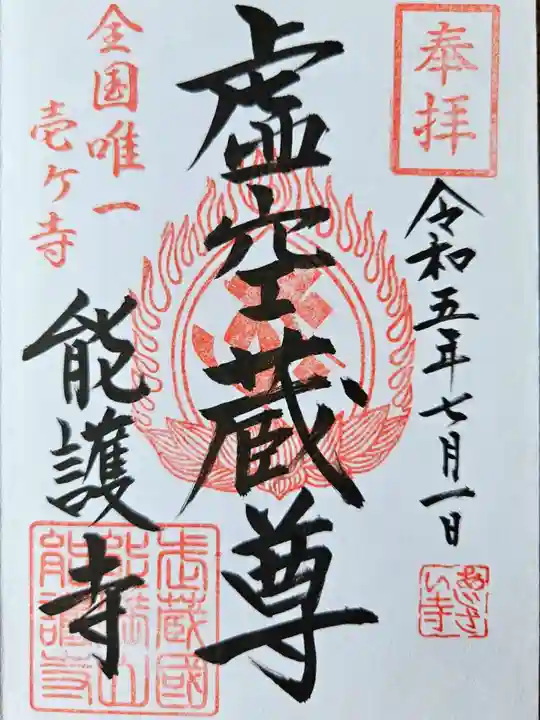 奉拝
令和五年七月一日
あじさい寺
虚空蔵尊
全国唯一
壱ケ寺
能護寺
武蔵國
能満山
能護寺